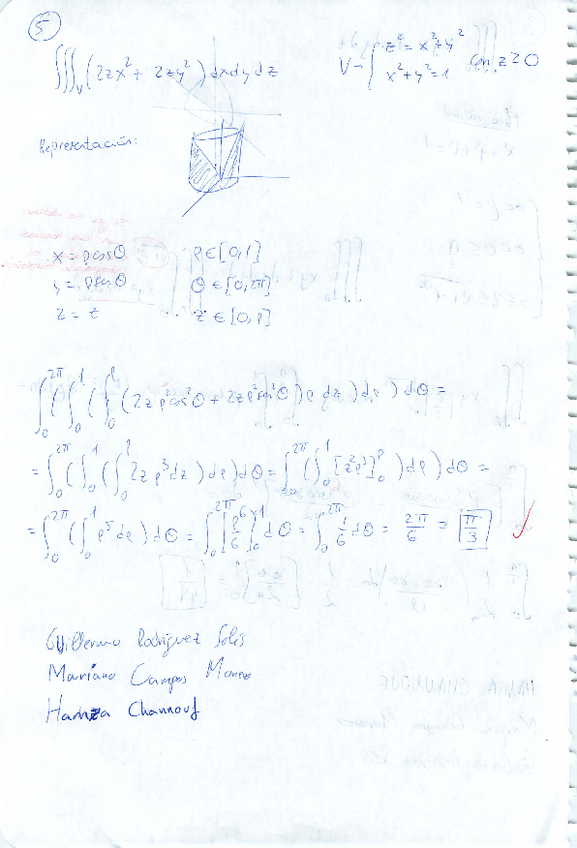 5
∭_V (2zx² + 2zy²) dxdydz    V → { z² = x² + y²  x² + y² = 1  con z ≥ 0
Representación:
x = ρcosθ    ρ ∈ [0,1]
y = ρsenθ    θ ∈ [0,2π]
z = z    z ∈ [0,ρ]
∫₀^2π (∫₀^1 (∫₀^ρ (2zρ²cos²θ + 2zρ²sen²θ) ρ dz) dρ) dθ =
= ∫₀^2π (∫₀^1 (∫₀^ρ 2zρ³dz) dρ) dθ = ∫₀^2π (∫₀^1 [z²ρ³]₀^ρ) dρ) dθ =
= ∫₀^2π (∫₀^1 ρ⁵dρ) dθ = ∫₀^2π [ρ⁶/6]₀^1 dθ = ∫₀^2π 1/6 dθ = 2π/6 = π/3 ✓
Guillermo Rodriguez Solis
Mariano Campos Moreno
Hamza Channouf